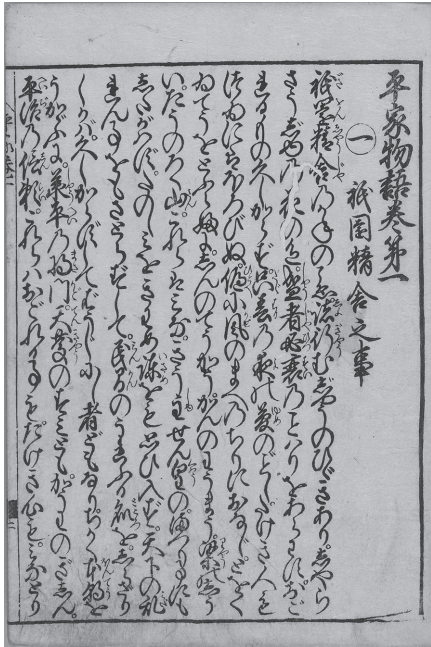 平家物語巻第一
㊀ 祇園精舎之事
祇園精舎のかねのこゑ諸行むじやうのひびきあり。しやら
さうじゆの花の色盛者必衰のことわりをあらはす。おご
れるもの久しからず。只春の夜の夢のごとし。たけき人も
つゐにはほろびぬ。偏に風のまへのちりにおなじ。とをく
いてうをとふらふに。しんのてうかう。かんのわうまう。梁のしう
い。たうのろく山。これらはみなきうしゆせん皇のまつりごとにも
したがはず。たのしみをきはめ。諫をも思ひ入ず。天下の乱
れんことをもさとらずして。民間のうれふる所をしらざり
しかば。久しからずしてばうじにし者どもなり。ちかく本朝を
うかゞふに。承平の将門。天慶のすみとも。かうわのぎしん。
平治の信頼。これらはおごれる事もたけき心も。みなとり